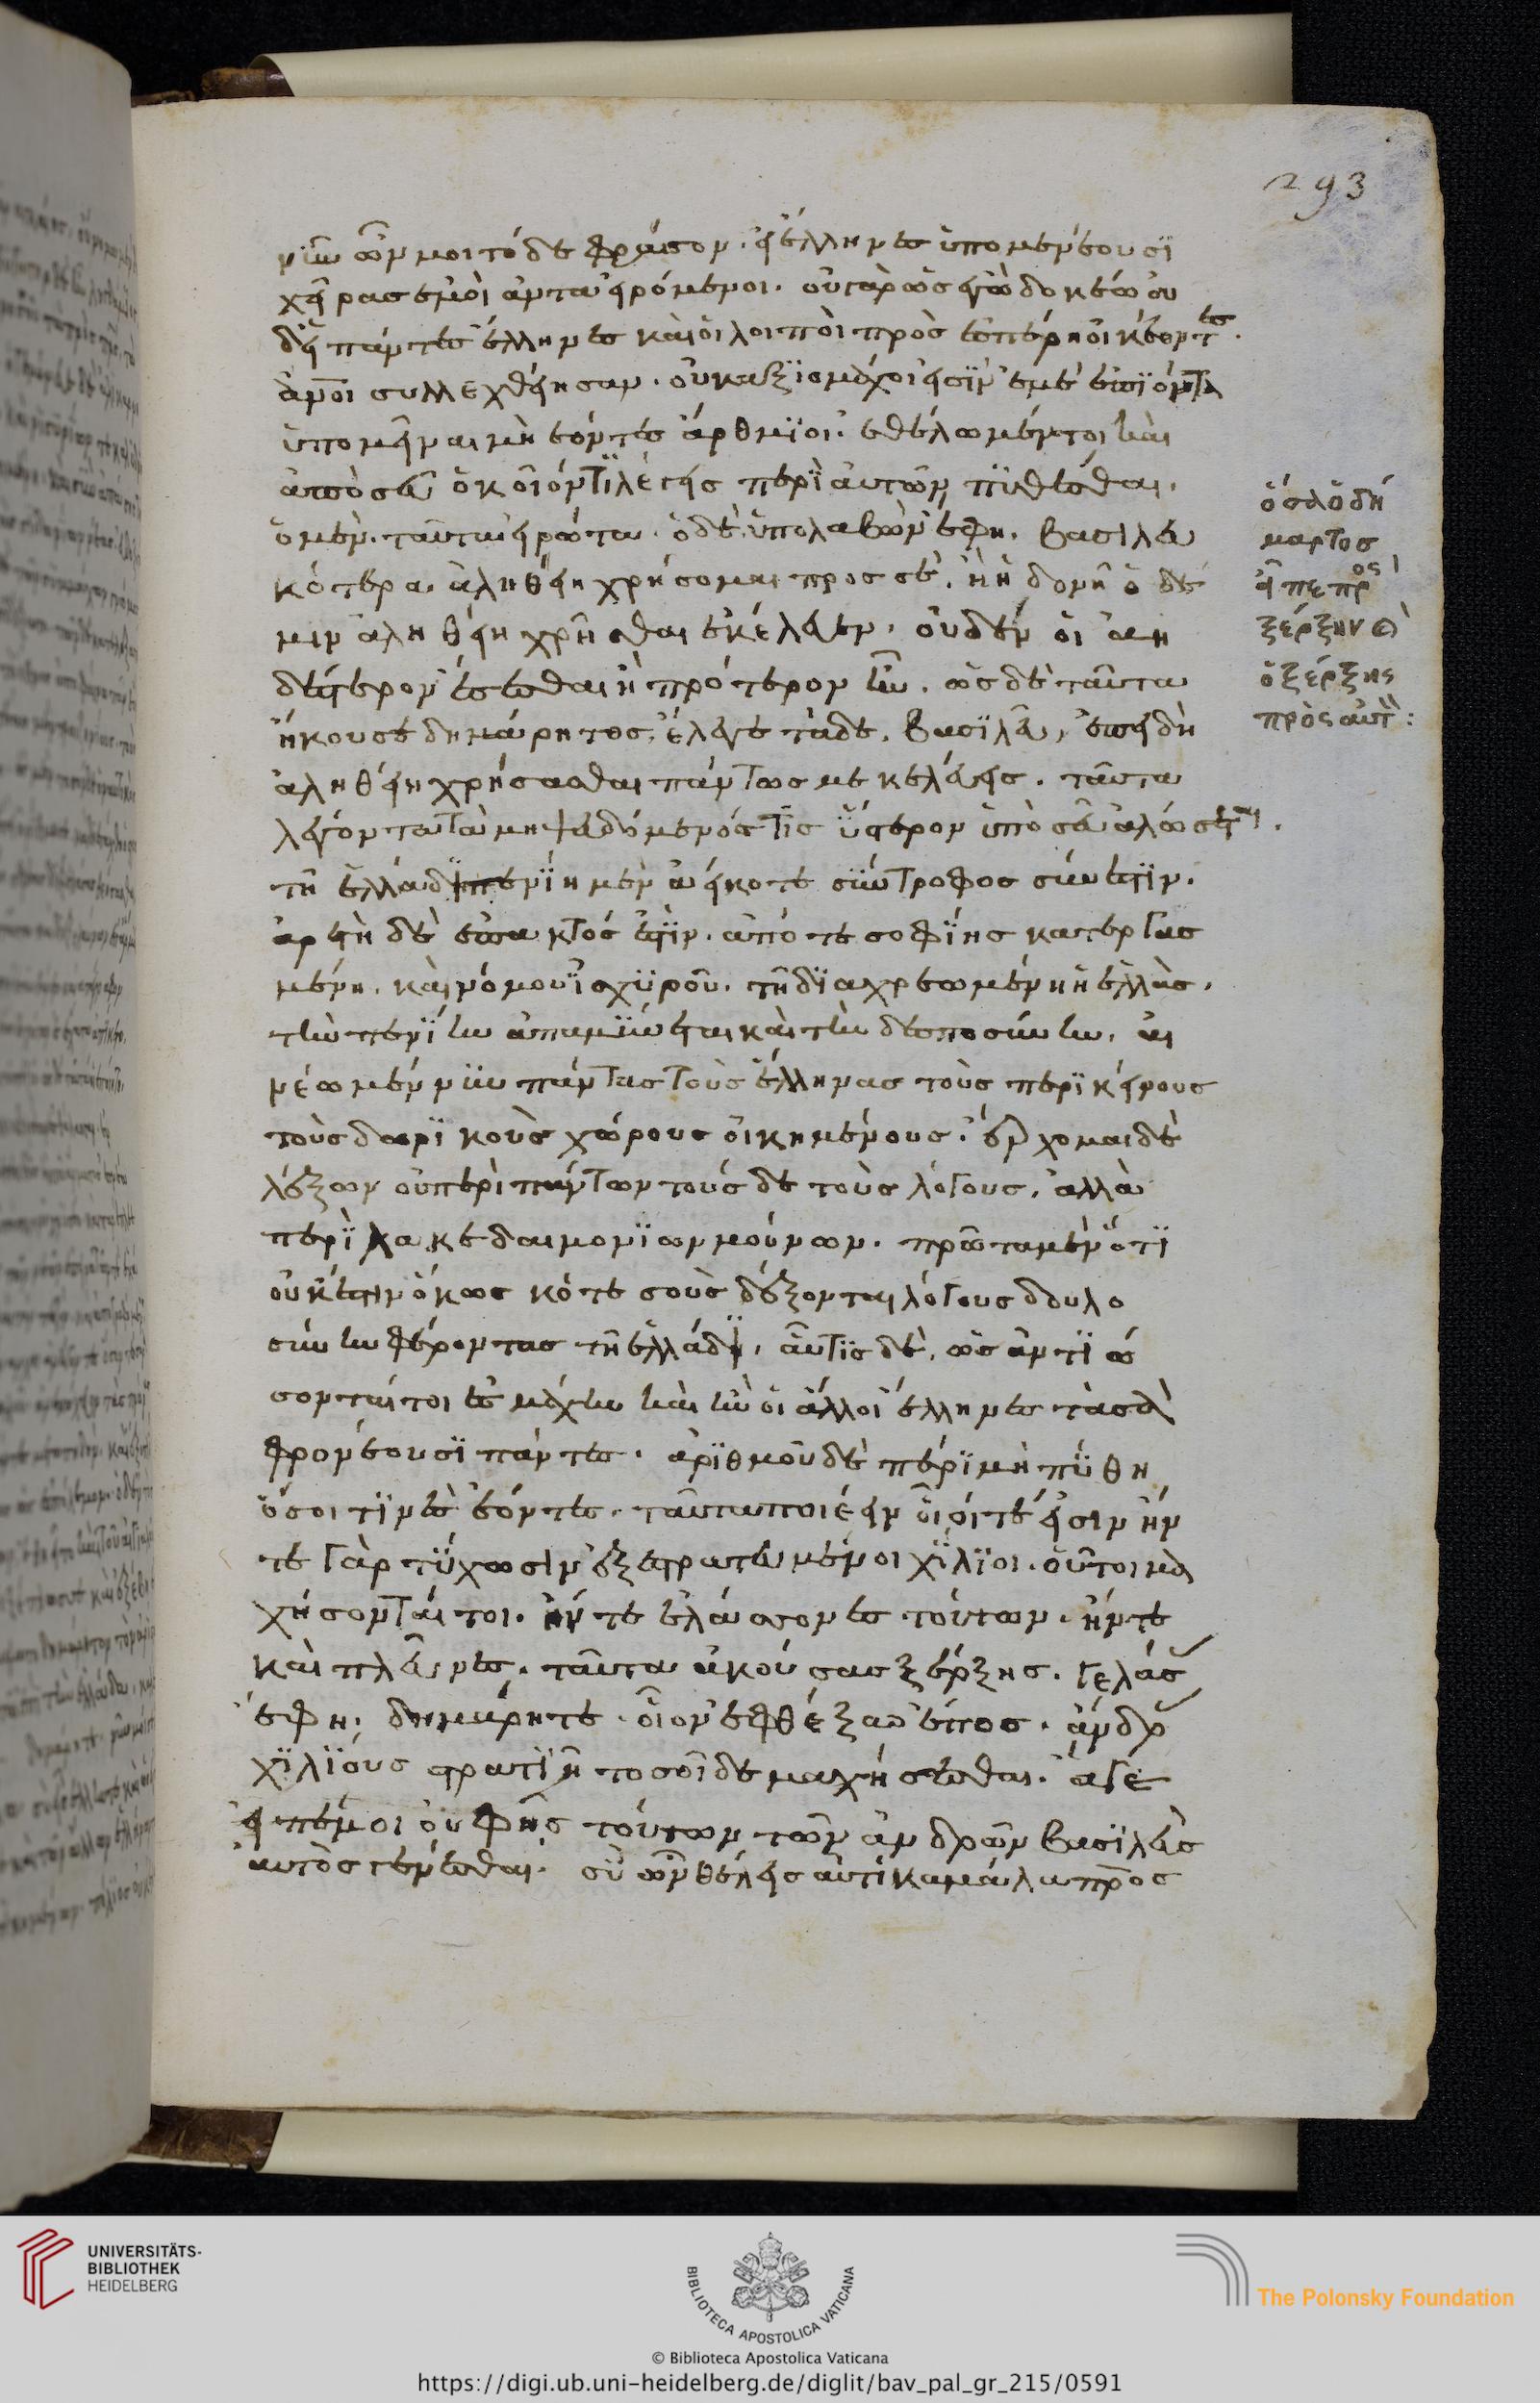 293
νῦν ὦν μοι τόδε φράσον. εἰ ἕλληνες ὑπομενέουσι
χεῖρας ἐμοὶ ἀνταειρόμενοι. οὐ γὰρ ὡς ἐγὼ δοκέω οὐ
δ' εἰ πάντες ἕλληνες καὶ οἱ λοιποὶ πρὸς ἑσπέρη οἰκέοντες
ἄνοι συλλεχθείησαν. οὐκ ἀξιόμαχοι εἰσὶν ἐμὲ ἐπιόντα
ὑπομεῖναι μὴ ἐόντες ἄρθμιοι. ἐθέλω μέντοι καὶ
ἀπὸ σεῦ ὁκοῖόν τι λέγεις περὶ αὐτῶν πυθέσθαι.
ὁ μὲν ταῦτα εἰρώτα. ὁ δὲ ὑπολαβὼν ἔφη. βασιλεῦ
κότερα ἀληθείη χρήσομαι πρὸς σὲ. ἢ ἡδονῆ ὁ δέ
μιν ἀληθείη χρῆσθαι ἐκέλευεν. οὐδέν οἱ ἀη
δέστερον ἔσεσθαι ἢ πρότερον ἦν. ὡς δὲ ταῦτα
ἤκουσε δημάρητος, ἔλεγε τάδε. βασιλεῦ, ἐπειδὴ
ἀληθείη χρήσασθαι πάντως με κελεύεις. ταῦτα
λέγοντα τὰ μὴ ψευδόμενός τις ὕστερον ὑπὸ σεῦ ἁλώσεται.
τῆ ἑλλάδι πενίη μὲν αἰεί κοτε σύντροφος σύνεστιν.
ἀρετὴ δὲ ἐπακτός ἐστιν. ἀπό τε σοφίης κατεργας
μένη. καὶ νόμου ἰσχυροῦ. τῆ διαχρεωμένη ἡ ἑλλὰς.
τήν πενίην ἀπαμύνεται καὶ τὴν δεσποσύνην. αἰ
νέω μέν νυν πάντας τοὺς ἕλληνας τοὺς περὶ κείνους
τοὺς δωρικοὺς χώρους οἰκημένους. ἔρχομαι δὲ
λέξων οὐ περὶ πάντων τούσδε τοὺς λόγους, ἀλλὰ
περὶ λακεδαιμονίων μούνων. πρῶτα μὲν ὅτι
οὐκ ἔστιν ὅκως κότε σοὺς δέξονται λόγους δουλο
σύνην φέροντας τῆ ἑλλάδι, αὖτις δὲ, ὡς ἀντιώ
σονταί τοι ἐς μάχην καὶ ἢν οἱ ἄλλοι ἕλληνες τὰ σὰ
φρονέουσι πάντες. ἀριθμοῦ δὲ πέρι μὴ πύθη
ὅσοι τινὲς ἐόντες. ταῦτα ποιέειν οἷοί τέ εἰσιν ἤν
τε γὰρ τύχωσιν ἐξεστρατευμένοι χίλιοι. οὗτοι μα
χήσονταί τοι. ἤν τε ἐλάσσονες τούτων. ἤν τε
καὶ πλεῦνες. ταῦτα ἀκούσας ξέρξης. γελάσ
ἔφη. δημάρητε. οἷον ἐφθέγξαο ἔπος. ἄνδρ
χιλίους στρατιῆ τοσῆδε μαχήσεσθαι. ἄγε
εἰπέ μοι σὺ φῂς τούτων τῶν ἀνδρῶν βασιλεὺς
αὐτὸς γενέσθαι. σὺ ὦν θελήσεις αὐτίκα μάλα πρὸς
ὅσα ὁ δή
μαρτος
εἶπε πρὸς
ξέρξην καὶ
ὁ ξέρξης
πρὸς αὐτὸν:
UNIVERSITÄTS-
BIBLIOTHEK
HEIDELBERG
BIBLIOTECA APOSTOLICA VATICANA
The Polonsky Foundation
© Biblioteca Apostolica Vaticana
https://digi.ub.uni-heidelberg.de/diglit/bav_pal_gr_215/0591